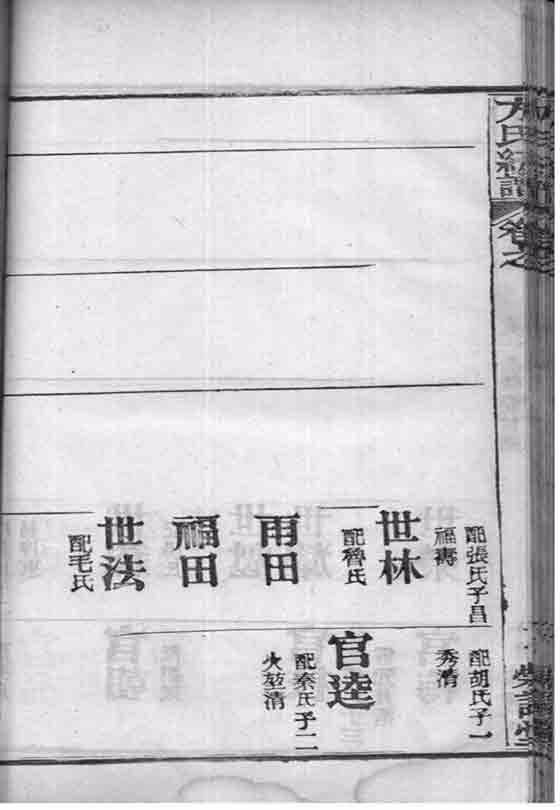 方氏統譜
卷之
配張氏子昌
福壽
世林
配魯氏
雨田
福田
世法
配毛氏
配胡氏子一
秀清
官逵
配秦氏子二
清